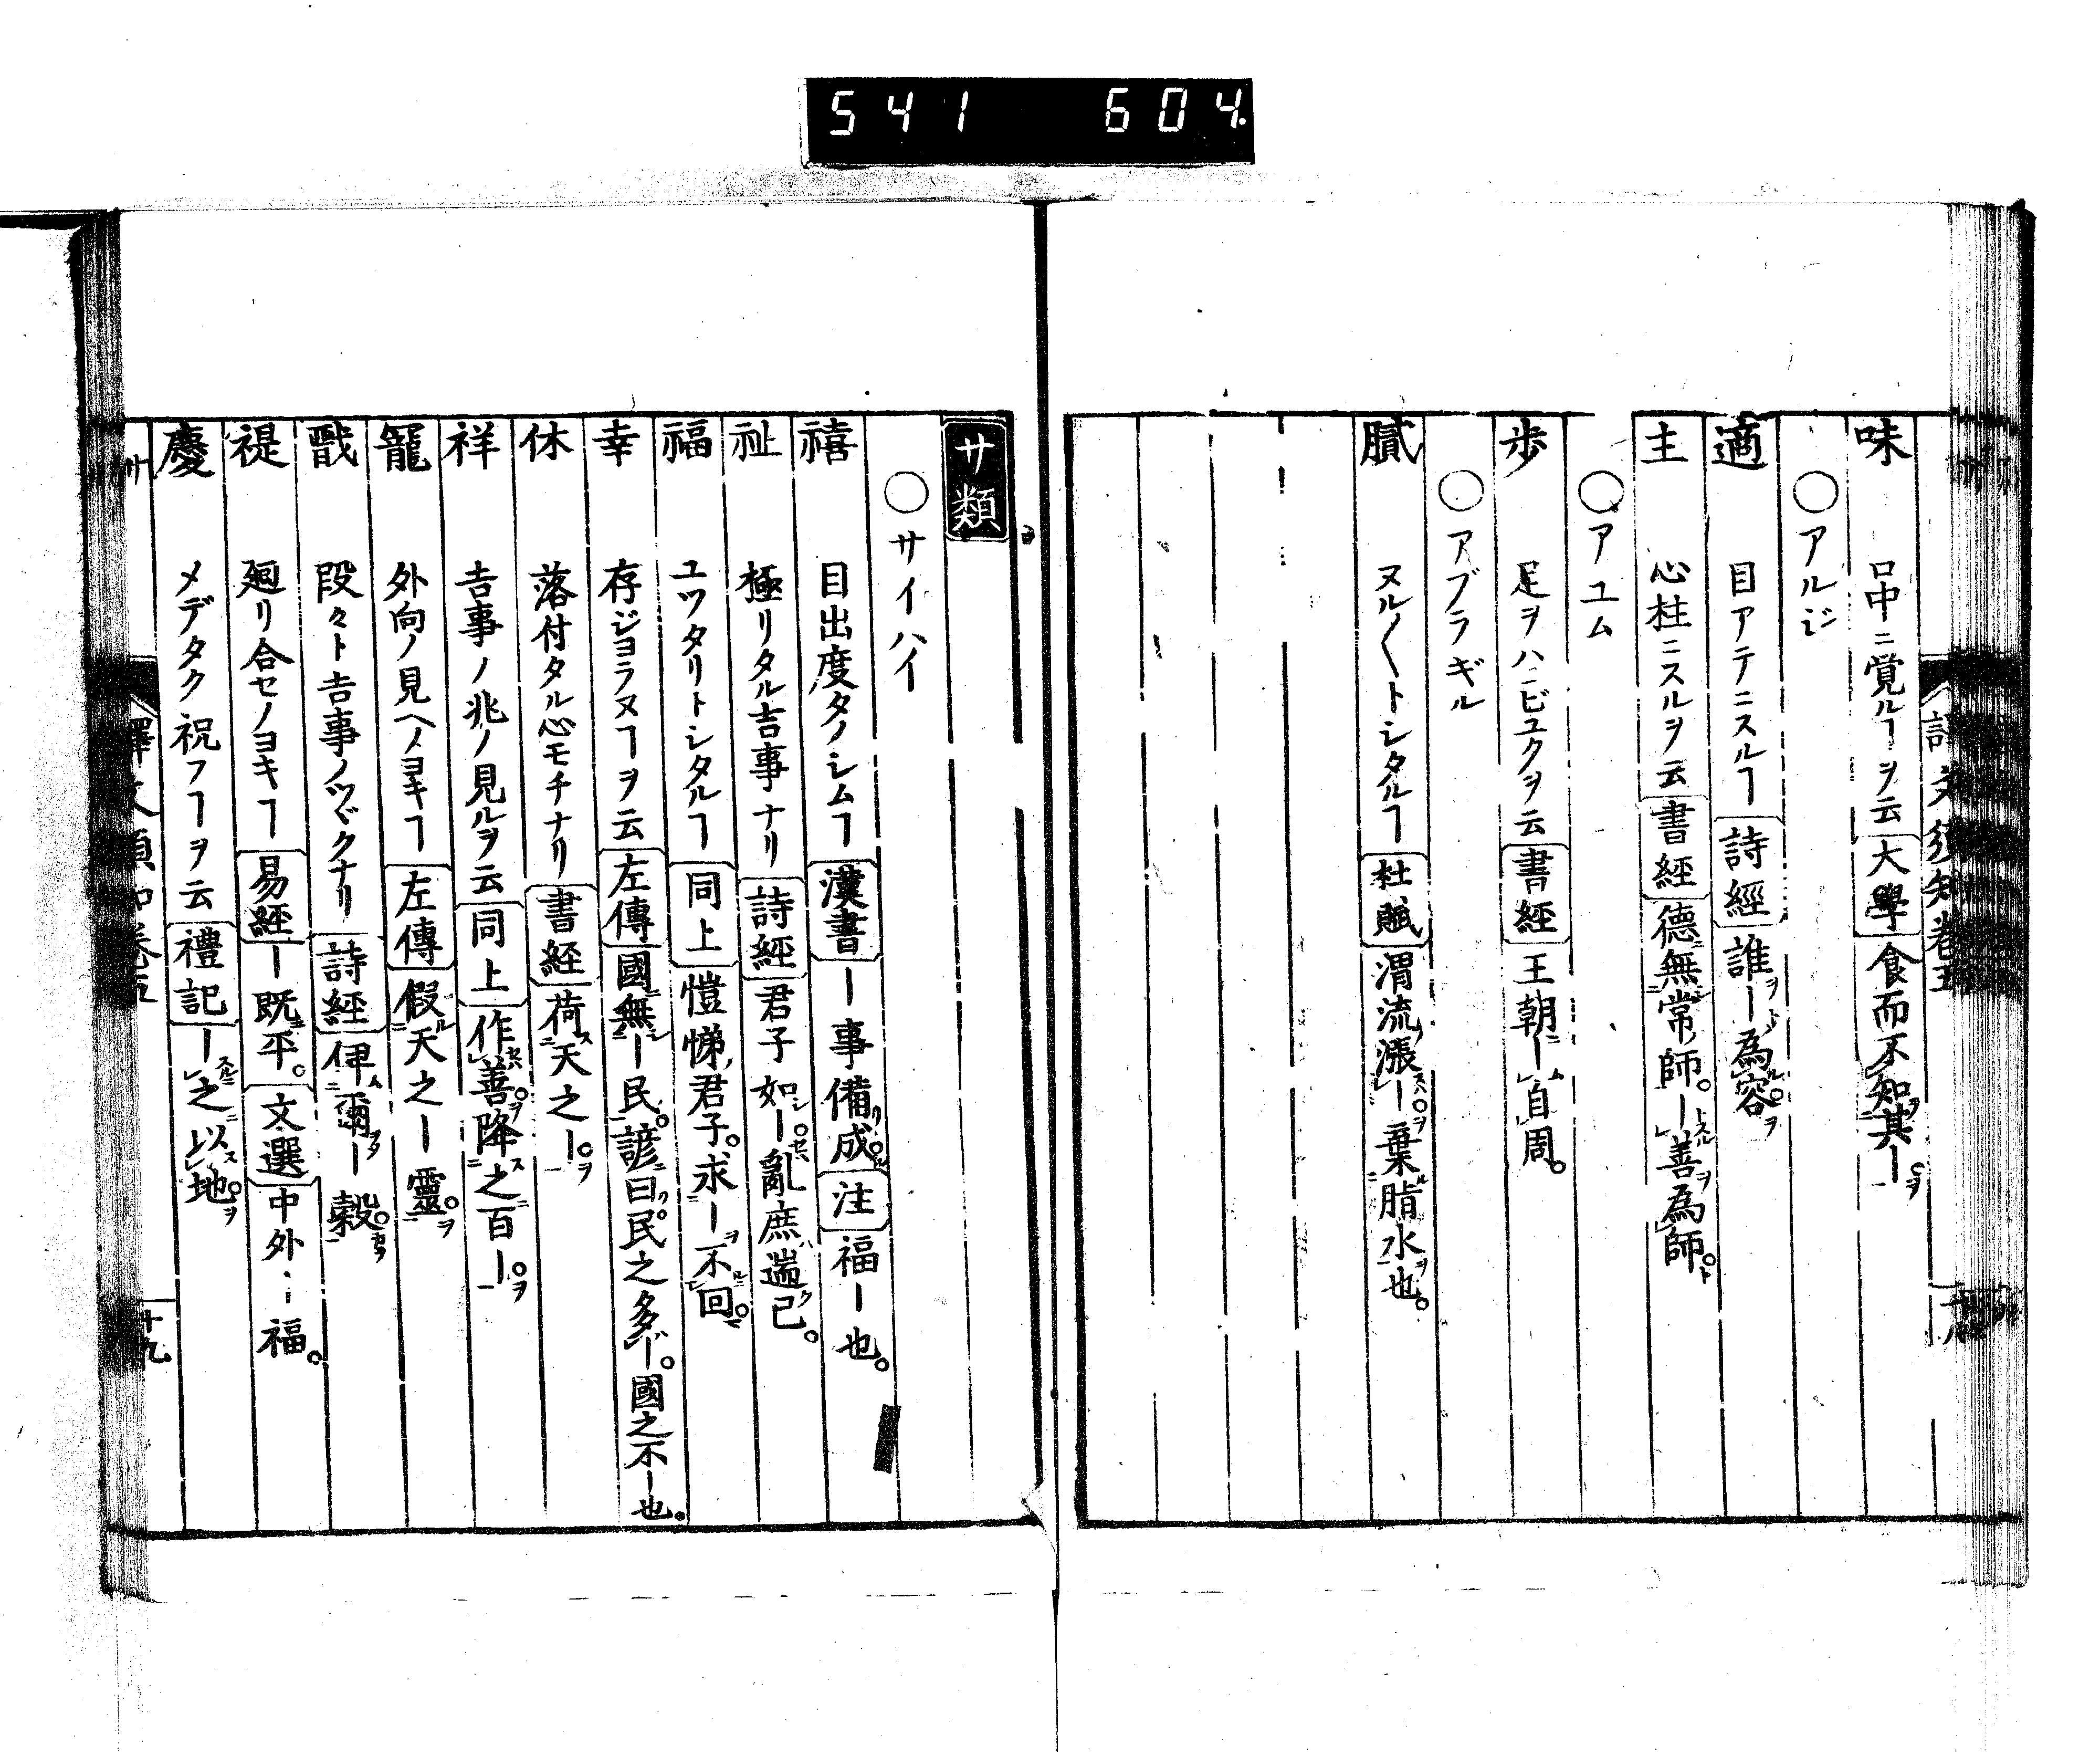 541 604
味 口中ニ覚ルヿヲ云 大學 食而不知其ー
○アルジ
適 目アテニスルヿ 詩經 誰ー為容
主 心柱ニスルヲ云 書経 德無常師。ー善為師。
○アユム
歩 足ヲハコビユクヲ云 書経 王朝ー自周。
○アブラギル
膩 ヌル〱トシタルヿ 杜賦 渭流漲ー棄脂水也。
サ類
○サイハイ
禧 目出度タノシムヿ 漢書 ー事備成 注 福ー也。
祉 極リタル吉事ナリ 詩経 君子如ー亂庶遄已。
福 ユツタリトシタルヿ 同上 愷悌君子。求ー不回。
幸 存ジヨラヌヿヲ云 左傳 國無ー民。諺曰民之多ー。國之不ー也。
休 落付タル心モチナリ 書経 荷天之ー。
祥 吉事ノ兆ノ見ルヲ云 同上 作善。降之百ー。
寵 外向ノ見ヘノヨキヿ 左傳 假天之ー靈。
戩 段々ト吉事ノツヾクナリ 詩経 俾爾ー穀。
禔 廻リ合セノヨキヿ 易経 ー既平。 文選 中外ー福。
慶 メデタク祝フヿヲ云 禮記 ー之以地。
サ
十九